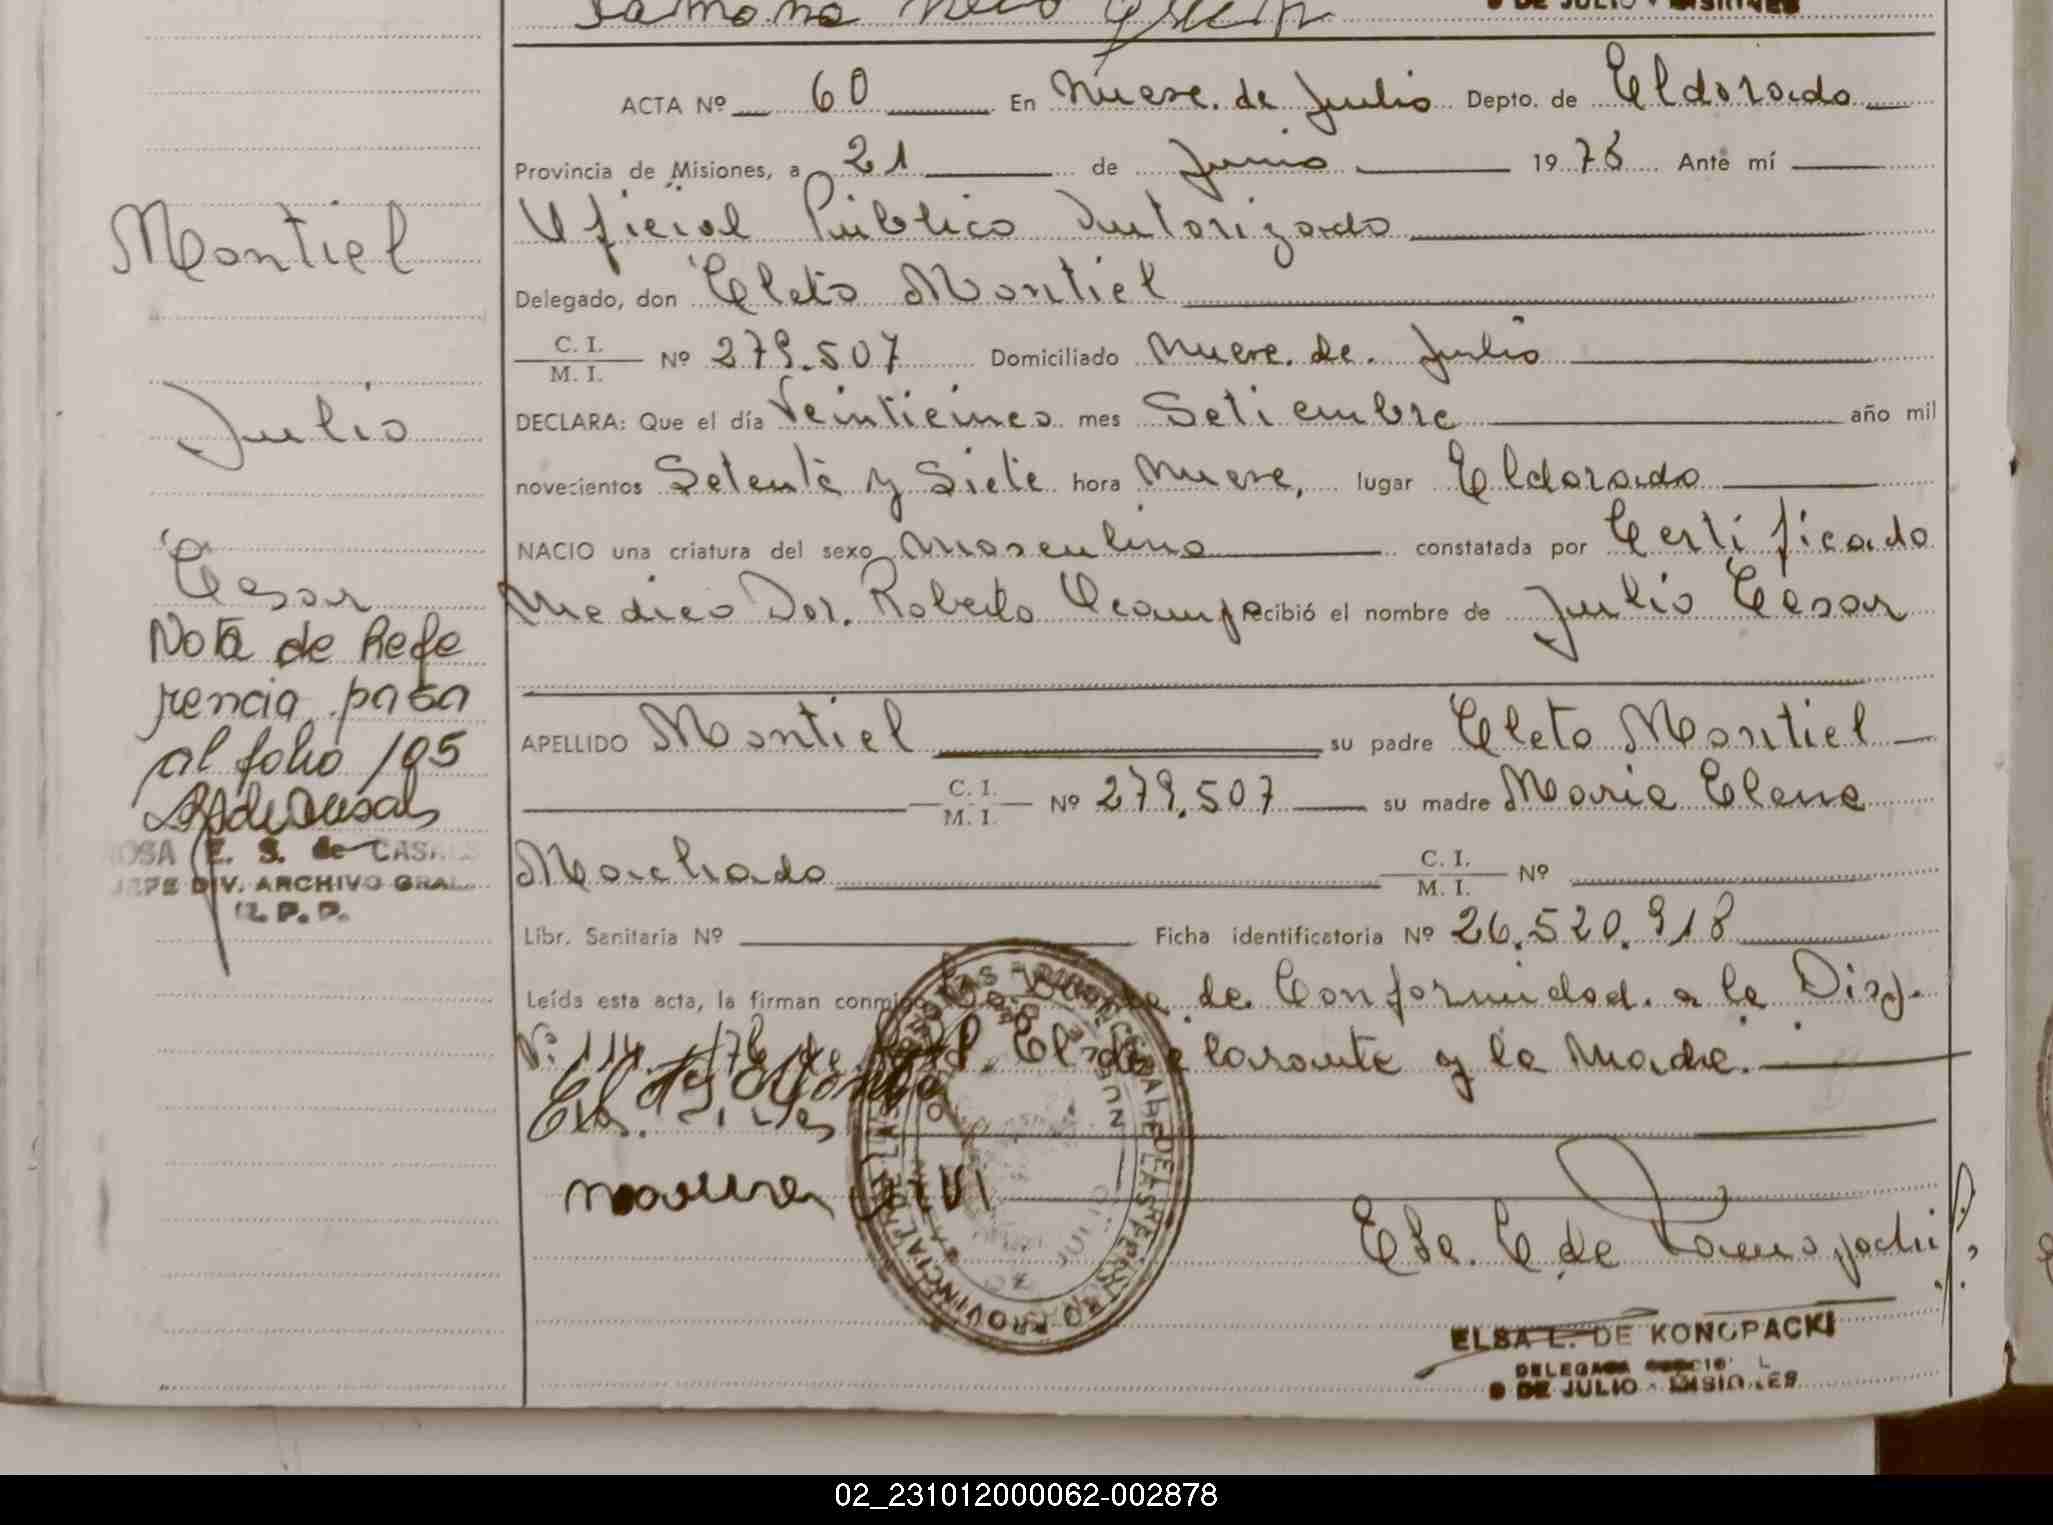 ACTA Nº 60 En Nueve de Julio Depto. de Eldorado
Provincia de Misiones, a 21 de Junio 1978 Ante mí
Oficial Público Autorizado
Montiel
Delegado, don Cleto Montiel
C. I.
M. I. Nº 279.507 Domiciliado Nueve de Julio
Julio
DECLARA: Que el día Veinticinco mes Setiembre año mil
novecientos Setenta y Siete hora Nueve, lugar Eldorado
NACIO una criatura del sexo Masculino constatada por Certificado
Cesar
Medico Dor. Roberto Ocampo recibió el nombre de Julio Cesar
Nota de Refe
rencia pasa
al folio 195
APELLIDO Montiel su padre Cleto Montiel
C. I.
M. I. Nº 279.507 su madre Maria Elena
ROSA E. S. de CASALS
JEFE DIV. ARCHIVO GRAL.
R. P. P.
Machado C. I.
M. I. Nº
Libr. Sanitaria Nº Ficha identificatoria Nº 26.520.918
Leída esta acta, la firman conmigo de Conformidad a la Disp.
Nº 114 El declarante y la Madre.
ELSA L. DE KONOPACKI
DELEGADA
9 DE JULIO - MISIONES
02_231012000062-002878